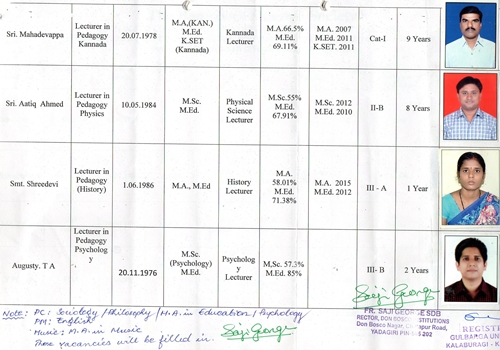 Sri. Mahadevappa Lecturer in Pedagogy Kannada 20.07.1978 M.A,(KAN.) M.Ed. K.SET (Kannada) Kannada Lecturer M.A.66.5% M.Ed. 69.11% M.A. 2007 M.Ed. 2011 K.SET. 2011 Cat-I 9 Years
Sri. Aatiq Ahmed Lecturer in Pedagogy Physics 10.05.1984 M.Sc. M.Ed. Physical Science Lecturer M.Sc.55% M.Ed. 67.91% M.Sc. 2012 M.Ed. 2010 II-B 8 Years
Smt. Shreedevi Lecturer in Pedagogy (History) 1.06.1986 M.A., M.Ed History Lecturer M.A. 58.01% M.Ed. 71.38% M.A. 2015 M.Ed. 2012 III - A 1 Year
Augusty. T A Lecturer in Pedagogy Psycholog y 20.11.1976 M.Sc. (Psychology) M.Ed. Psycholog y Lecturer M.Sc. 57.3% M.Ed. 85% III- B 2 Years
Saji George
FR. SAJI GEORGE SDB
RECTOR, DON BOSCO INSTITUTIONS
Don Bosco Nagar, Chittapur Road,
YADAGIRI PIN 202
REGIST
GULBARGA
KALABURAGI - K
Note: PC: Sociology / Philosophy / M.A. in Education / Psychology
PM: English
Music: M.A. in Music
These vacancies will be filled in. Saji George